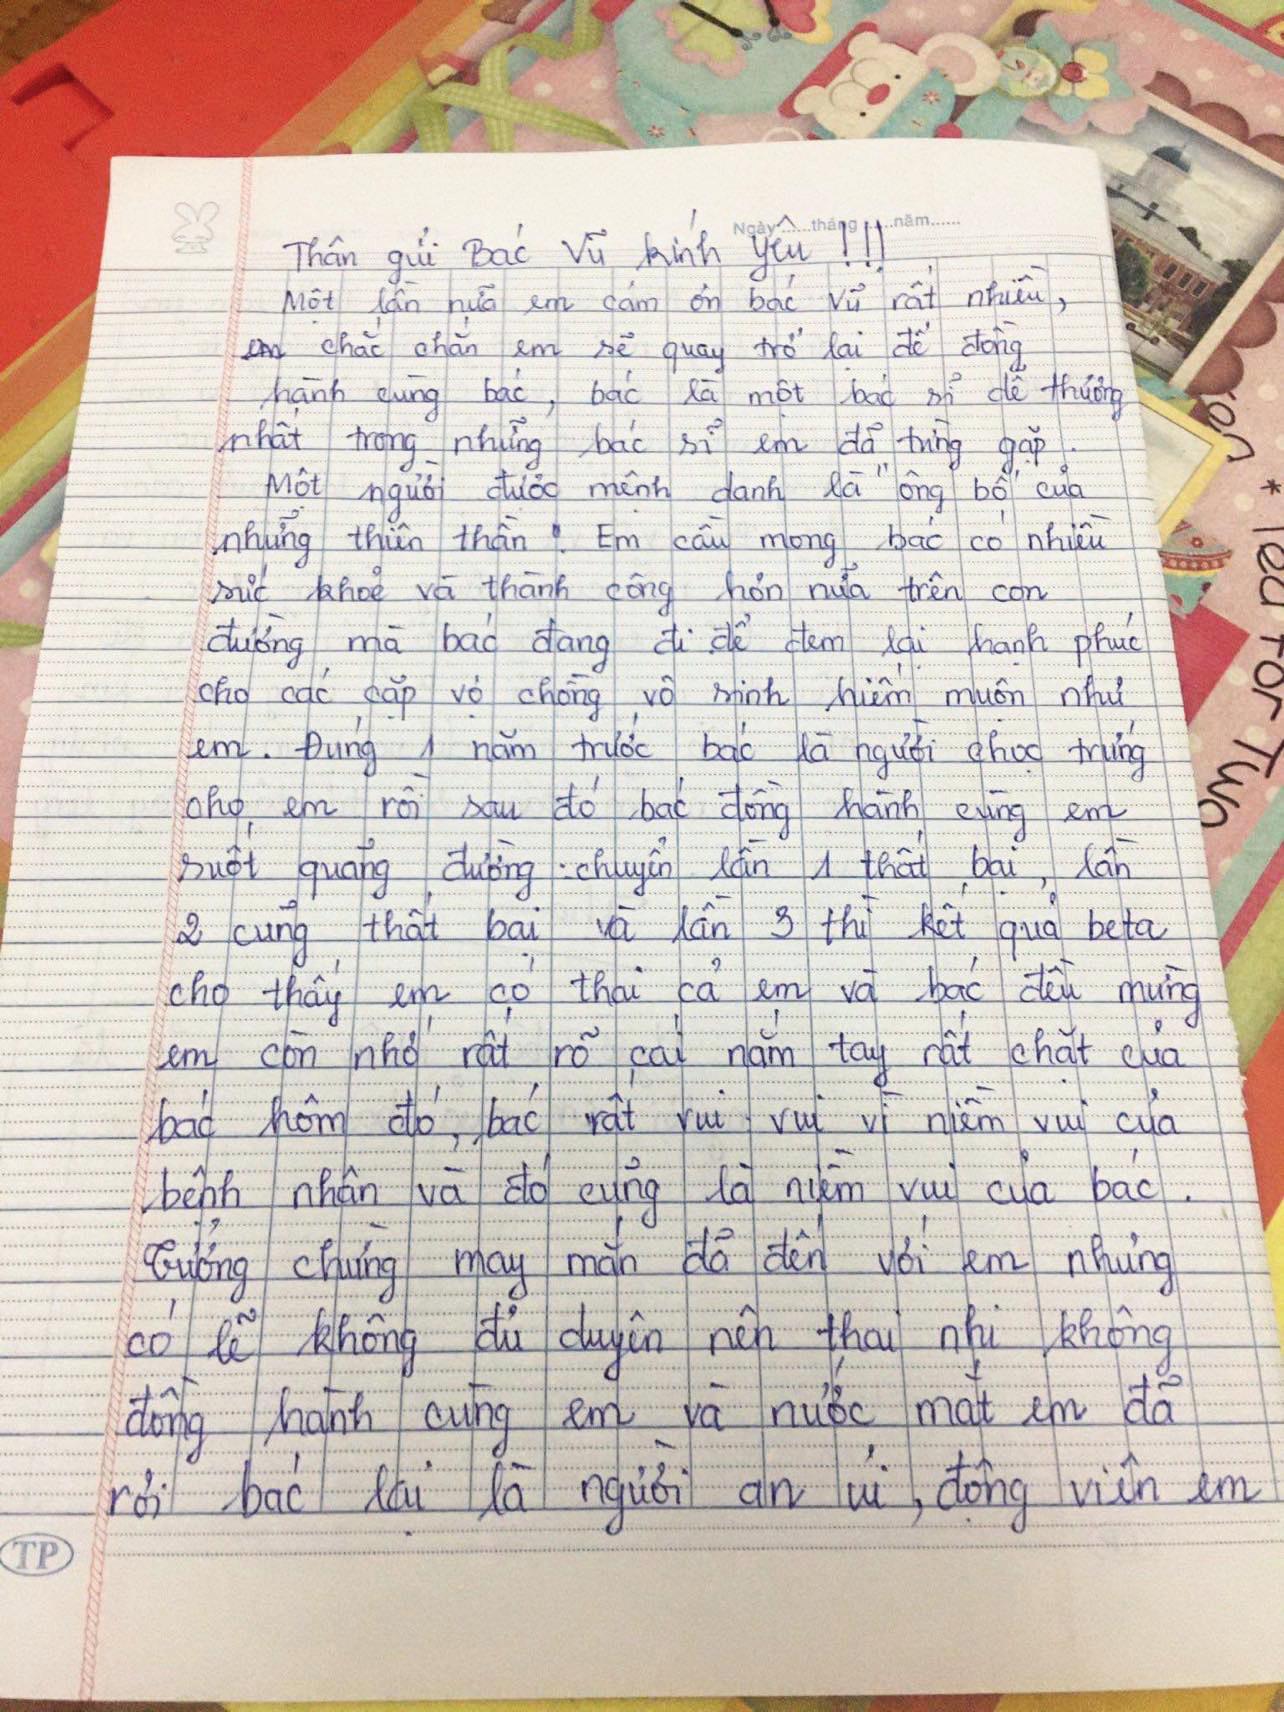 Ngày......tháng......năm......
Thân gửi Bác Vũ kính yêu !!!
Một lần nữa em cảm ơn bác Vũ rất nhiều,
em chắc chắn em sẽ quay trở lại để đồng
hành cùng bác, bác là một bác sĩ dễ thương
nhất trong những bác sĩ em đã từng gặp.
Một người được mệnh danh là "ông bố của
những thiên thần". Em cầu mong bác có nhiều
sức khoẻ và thành công hơn nữa trên con
đường mà bác đang đi để đem lại hạnh phúc
cho các cặp vợ chồng vô sinh hiếm muộn như
em. Đúng 1 năm trước bác là người chọc trứng
cho em rồi sau đó bác đồng hành cùng em
suốt quãng đường chuyển lần 1 thất bại, lần
2 cũng thất bại và lần 3 thì kết quả beta
cho thấy em có thai cả em và bác đều mừng
em còn nhớ rất rõ cái nắm tay rất chặt của
bác hôm đó, bác rất vui vui vì niềm vui của
bệnh nhân và đó cũng là niềm vui của bác.
Tưởng chừng may mắn đã đến với em nhưng
có lẽ không đủ duyên nên thai nhi không
đồng hành cùng em và nước mắt em đã
rơi bác lại là người an ủi, động viên em
TP
Tea For Two